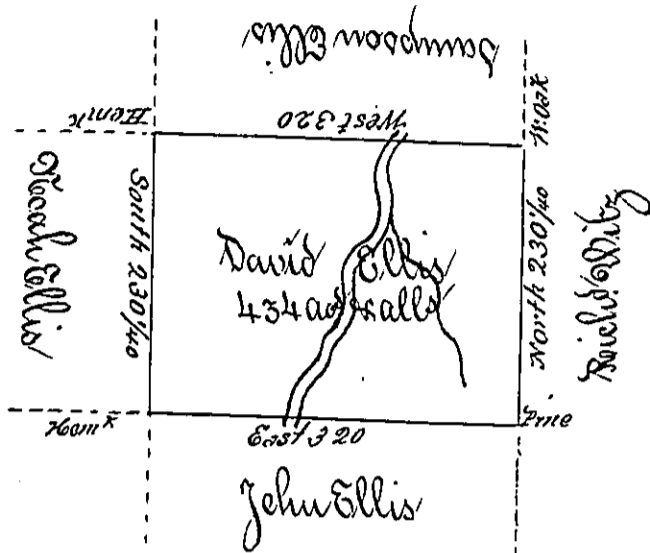 Sampson Ellis
Hemk
West 320
W:Oak
Noah Ellis
South 230¼0
David Ellis
434 acs & alls
North 230¼0
Hemk
East 320
Pine
John Ellis